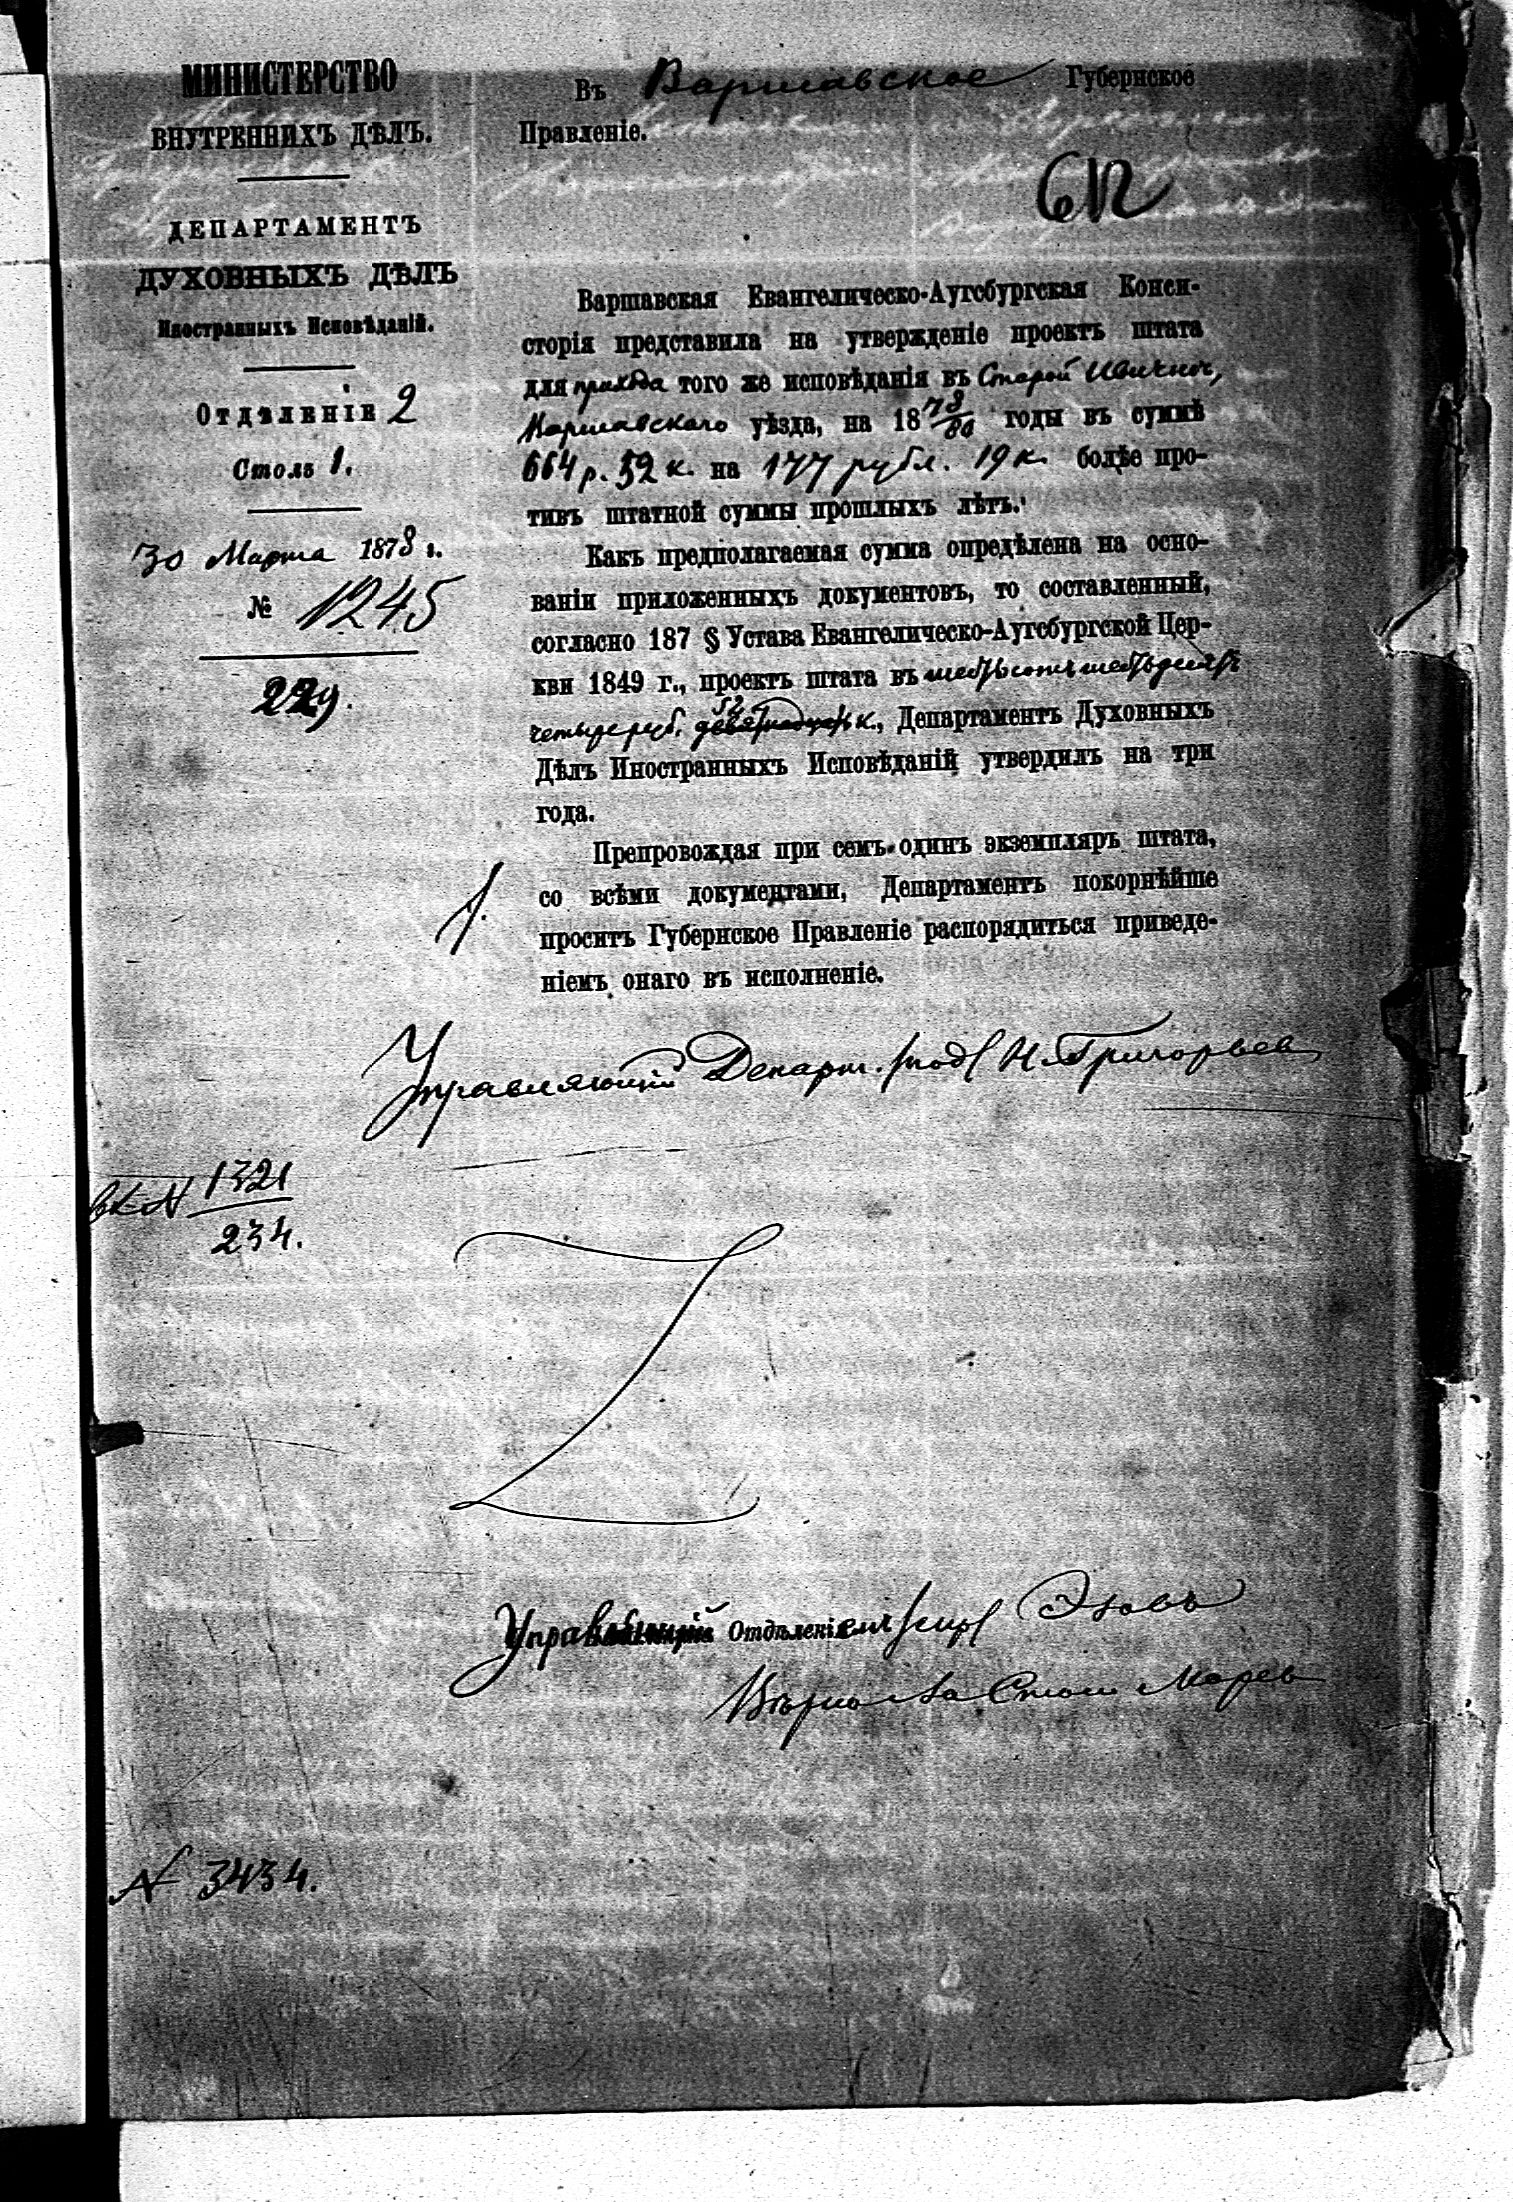 МИНИСТЕРСТВО
ВНУТРЕННИХЪ ДѢЛЪ.
ДЕПАРТАМЕНТЪ
ДУХОВНЫХЪ ДѢЛЪ
Иностранныхъ Исповѣданій.
Отдѣленіе 2
Столъ 1.
30 Марта 1878 г.
№ 1245
229.
Въ Варшавское Губернское
Правленіе.
Варшавская Евангелическо-Аугсбургская Конси-
сторія представила на утвержденіе проектъ штата
для прихода того же исповѣданія въ Старой Ивичной,
Варшавскаго уѣзда, на 1878/80 годы въ суммѣ
664 р. 52 к. на 177 рубл. 19 к. болѣе про-
тивъ штатной суммы прошлыхъ лѣтъ.
Какъ предполагаемая сумма опредѣлена на осно-
ваніи приложенныхъ документовъ, то составленный,
согласно 187 § Устава Евангелическо-Аугсбургской Цер-
кви 1849 г., проектъ штата въ шестьсотъ шестьдесятъ
52
четыре руб. девятнадцать к., Департаментъ Духовныхъ
Дѣлъ Иностранныхъ Исповѣданій утвердилъ на три
года.
Препровождая при семъ одинъ экземпляръ штата,
со всѣми документами, Департаментъ покорнѣйше
проситъ Губернское Правленіе распорядиться приведе-
ніемъ онаго въ исполненіе.
Управляющій Департ. /под/ Н. Григорьев
1321
234.
Управляющій Отдѣленіемъ
Вѣрно За Стол
N 3434.